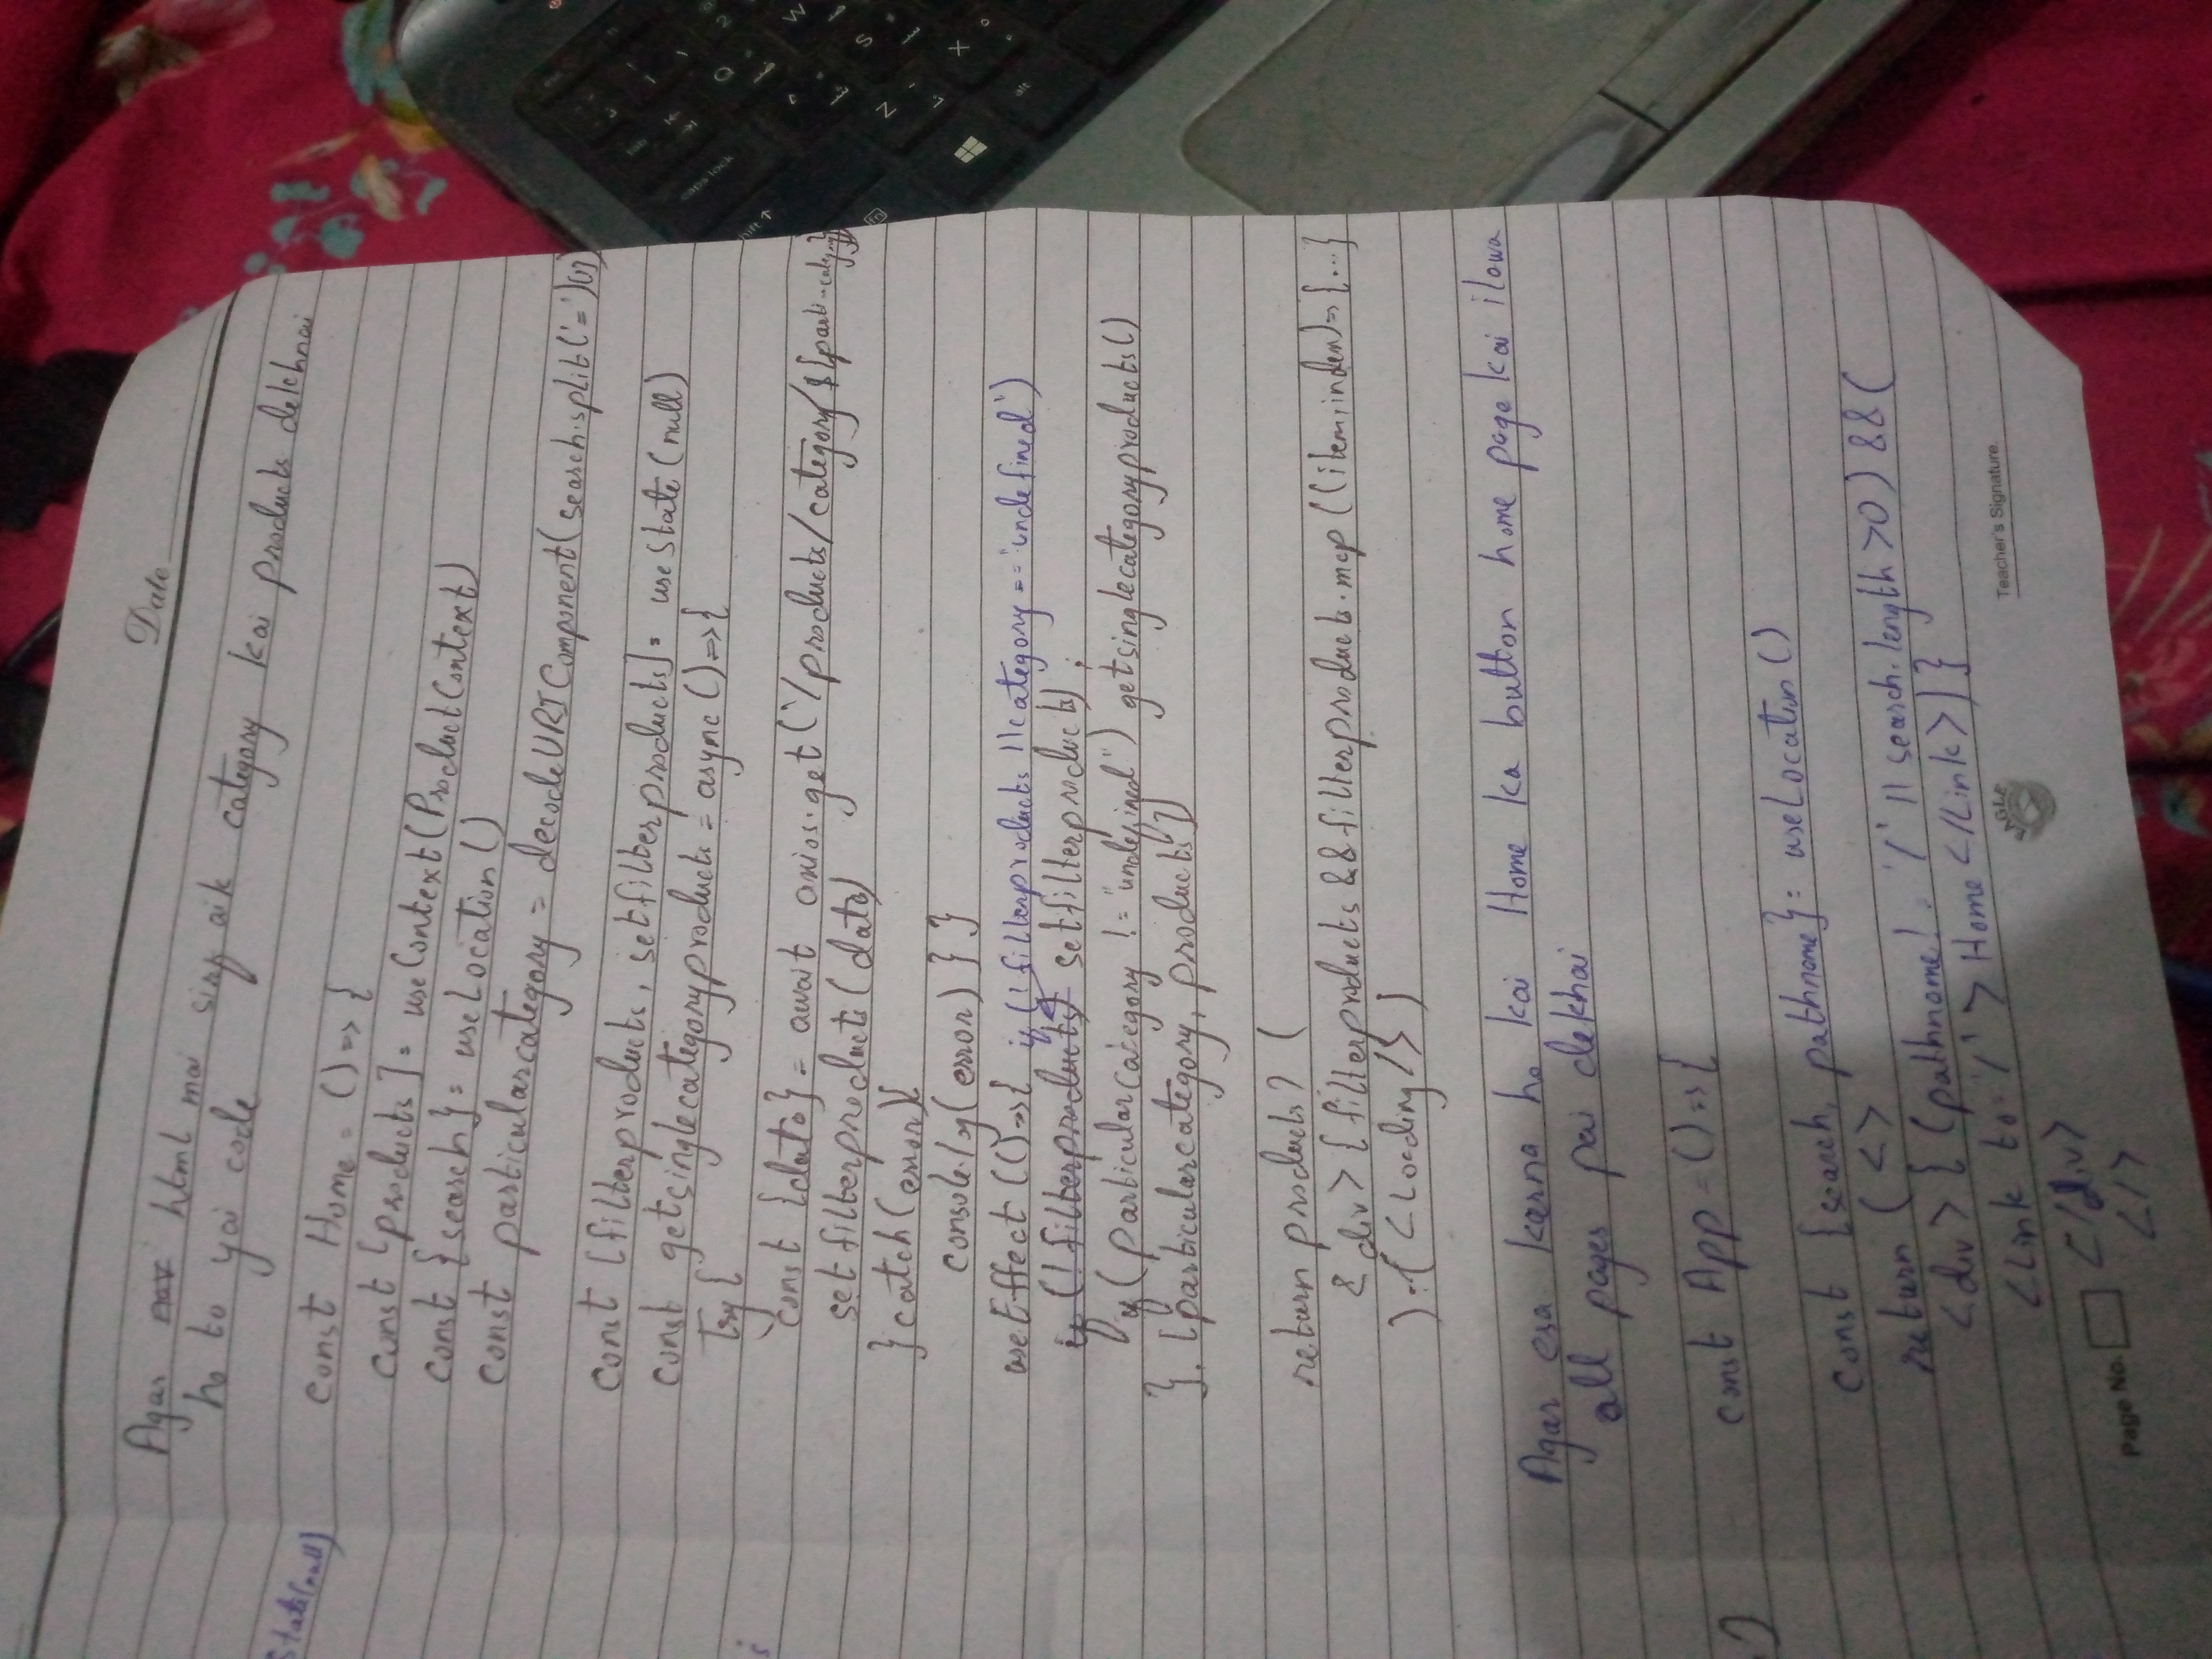 Date
Agar html mai sirf aik category kai products dekhnai
ho to yai code
const Home = () => {
const [products] = useContext(ProductContext)
const {search} = useLocation()
const particularcategory = decodeURIComponent(search.split('=')[1])
const [filterproducts, setfilterproducts] = useState(null)
const getsinglecategoryproducts = async () => {
try {
const {data} = await axios.get(`/products/category/${
setfilterproducts(data)
} catch(error){
console.log(error) } }
useEffect(() => { if (!filterproducts || category == 'undefined')
if (!filterproducts) setfilterproducts(products);
if (particularcategory != "undefined") getsinglecategoryproducts()
}, [particularcategory, products])
return products ? (
<div> {filterproducts && filterproducts.map((item,index) => {...}
) : (<Loading/>)
Agar esa karna ho kai Home ka button home page kai ilawa
all pages pai dekhai
const App = () => {
const {search, pathname} = useLocation()
return ( <>
<div> { (pathname != '/' || search.length >0) && (
<Link to='/'> Home </Link>)}
</div>
</>
Page No.
Teacher's Signature
State(null)